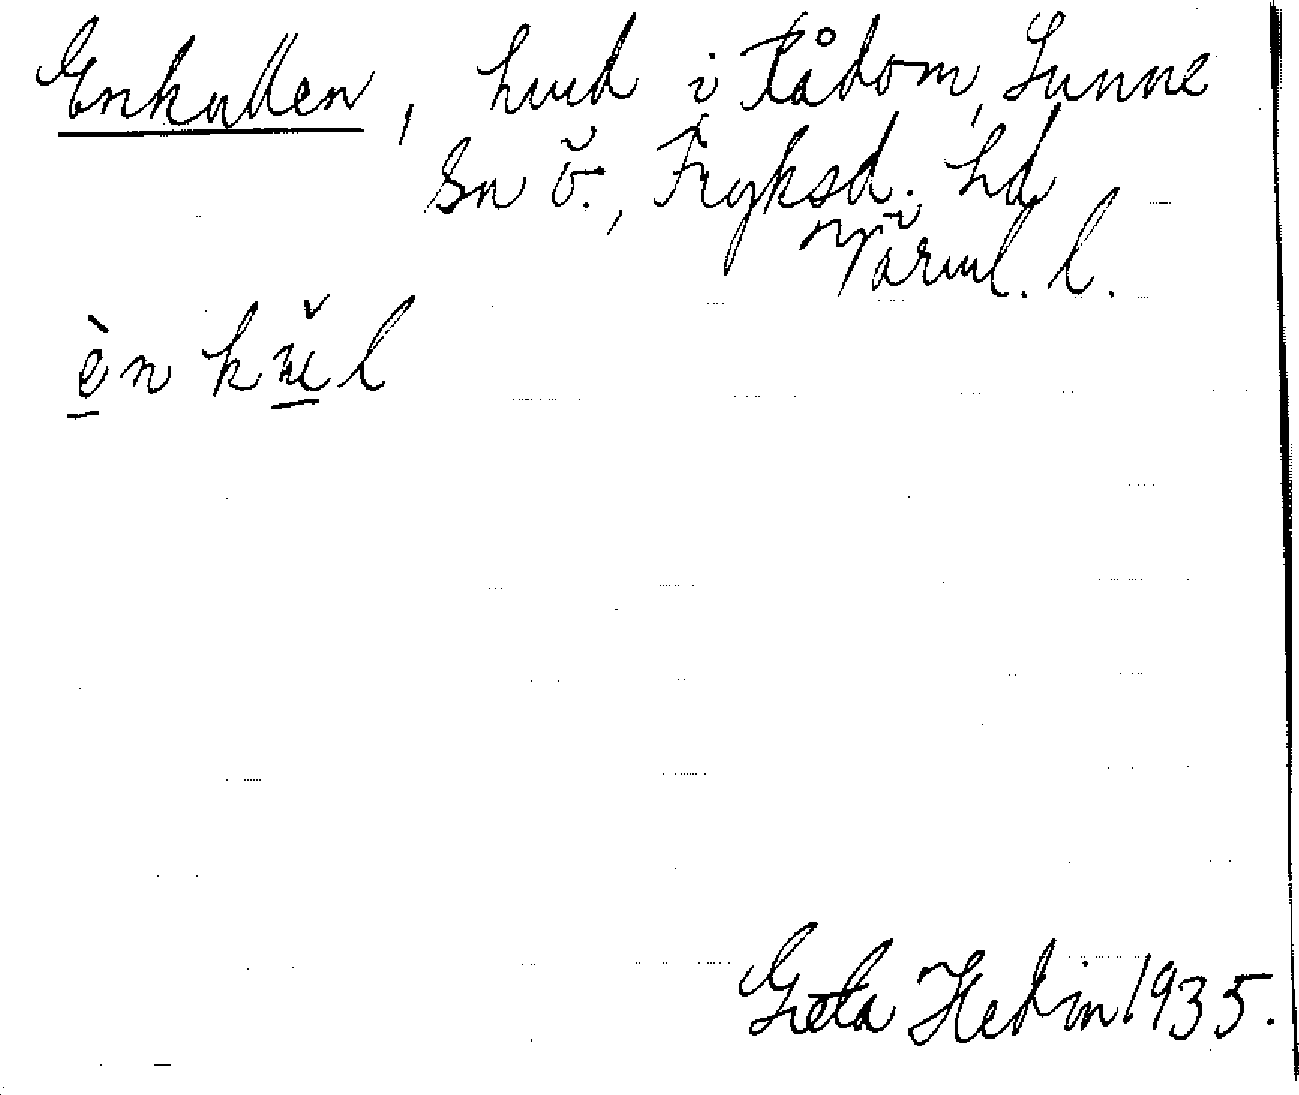 Enkullen, hmd i Rådom, Sunne
Sn ö., Fryksd. hd
Värml. l.
ènkŭl
Greta Hedin 1935.